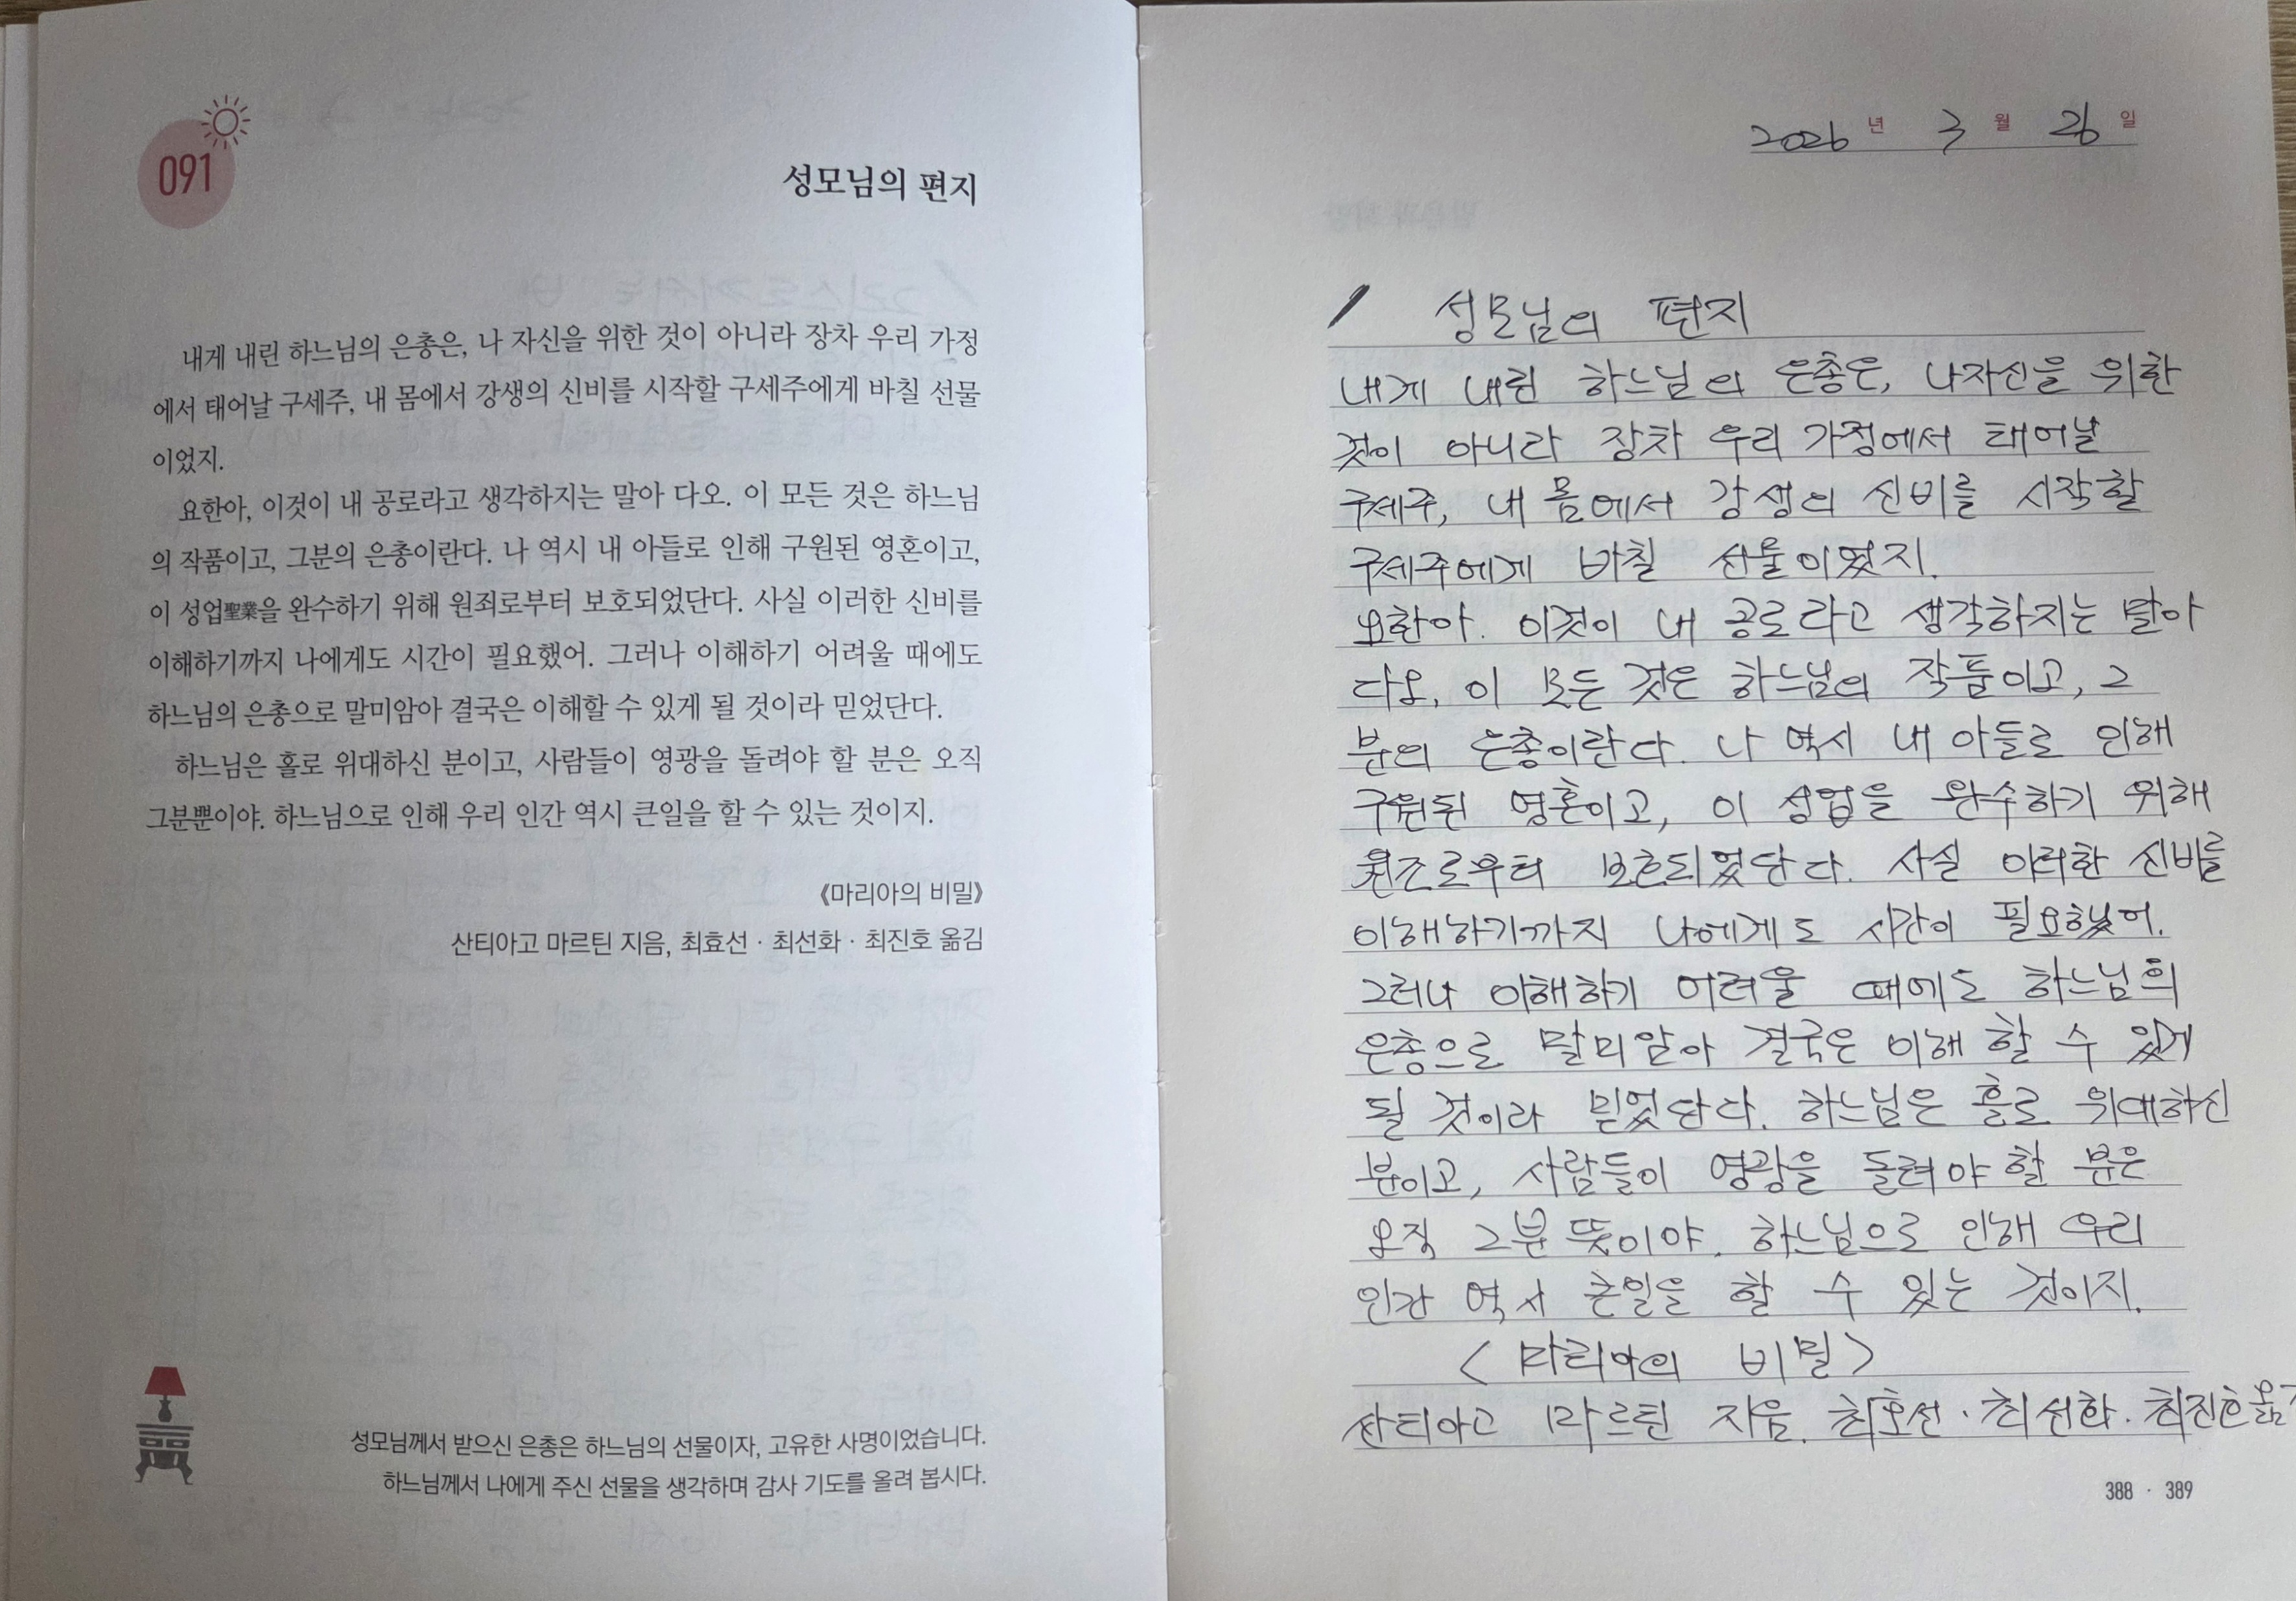 091
성모님의 편지
내게 내린 하느님의 은총은, 나 자신을 위한 것이 아니라 장차 우리 가정
에서 태어날 구세주, 내 몸에서 강생의 신비를 시작할 구세주에게 바칠 선물
이었지.
요한아, 이것이 내 공로라고 생각하지는 말아 다오. 이 모든 것은 하느님
의 작품이고, 그분의 은총이란다. 나 역시 내 아들로 인해 구원된 영혼이고,
이 성업聖業을 완수하기 위해 원죄로부터 보호되었단다. 사실 이러한 신비를
이해하기까지 나에게도 시간이 필요했어. 그러나 이해하기 어려울 때에도
하느님의 은총으로 말미암아 결국은 이해할 수 있게 될 것이라 믿었단다.
하느님은 홀로 위대하신 분이고, 사람들이 영광을 돌려야 할 분은 오직
그분뿐이야. 하느님으로 인해 우리 인간 역시 큰일을 할 수 있는 것이지.
《마리아의 비밀》
산티아고 마르틴 지음, 최효선 · 최선화 · 최진호 옮김
성모님께서 받으신 은총은 하느님의 선물이자, 고유한 사명이었습니다.
하느님께서 나에게 주신 선물을 생각하며 감사 기도를 올려 봅시다.
2026 년 3 월 26 일
성모님의 편지
내게 내린 하느님의 은총은, 나자신을 위한
것이 아니라 장차 우리 가정에서 태어날
구세주, 내 몸에서 강생의 신비를 시작할
구세주에게 바칠 선물이였지.
요한아. 이것이 내 공로라고 생각하지는 말아
다오. 이 모든 것은 하느님의 작품이고, 그
분의 은총이란다. 나 역시 내 아들로 인해
구원된 영혼이고, 이 성업을 완수하기 위해
원죄로부터 보호되었단다. 사실 이러한 신비를
이해하기까지 나에게도 시간이 필요했어.
그러나 이해하기 어려울 때에도 하느님의
은총으로 말미암아 결국은 이해 할 수 있게
될 것이라 믿었단다. 하느님은 홀로 위대하신
분이고, 사람들이 영광을 돌려야 할 분은
오직 그분 뜻이야. 하느님으로 인해 우리
인간 역시 큰일을 할 수 있는 것이지.
〈마리아의 비밀〉
산티아고 마르틴 지음. 최호선 · 최선화. 최진호
388 · 389